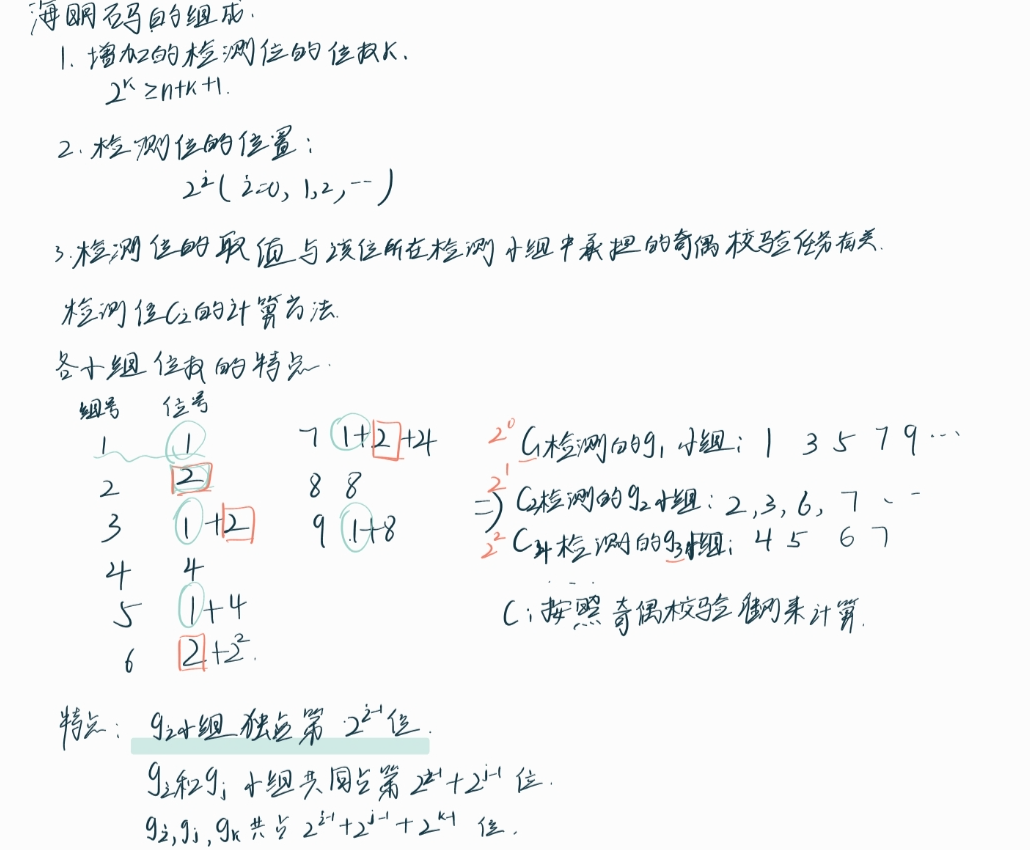 海明码的组成.
1. 增加的检测位的位数k.
2^k ≥ n+k+1.
2. 检测位的位置:
2^i ( i=0, 1,2, … )
3. 检测位的取值与该位所在检测小组中承担的奇偶校验任务有关.
检测位Ci的计算方法.
各小组位数的特点.
组号 位号
1 1
2 2
3 1+2
4 4
5 1+4
6 2+2^2.
7 1+2+4
8 8
9 1+8
2^0 C1检测的g1小组: 1 3 5 7 9 …
⇒ 2^1 C2检测的g2小组: 2,3,6, 7 …
2^2 C4检测的g3小组: 4 5 6 7
…
Ci按照奇偶校验原则来计算.
特点: gi小组独占第 2^{i-1}位.
gi和gj小组共同占第2^{i-1}+2^{j-1} 位.
gi,gj,gk共占 2^{i-1}+2^{j-1}+2^{k-1} 位.